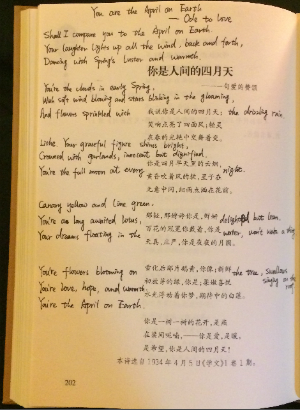 You are the April on Earth
— Ode to love
Shall I compare you to the April on Earth
Your laughter lights up all the wind, back and forth,
Dancing with Spring's luster and warmth.
你是人间的四月天
——一句爱的赞颂
You're the clouds in early Spring,
With soft wind blowing and stars blinking in the gloaming,
And flowers sprinkled with the drizzling rain.
我说你是人间的四月天;
笑响点亮了四面风;轻灵
在春的光艳中交舞着变。
Lithe Your graceful figure shines bright,
Crowned with garlands, innocent but dignified.
You're the full moon at every night.
你是四月早天里的云烟,
黄昏吹着风的软,星子在
无意中闪,细雨点洒在花前。
Canary yellow and lime green.
You're as long awaited lotus, delightful but
Your dreams floating in the water,
那轻,那娉婷你是,鲜妍
百花的冠冕你戴着,你是
天真,庄严,你是夜夜的月圆。
You're flowers blooming on the tree, swallows singing on the
You're love, hope, and warmth
You're the April on Earth
雪化后那片鹅黄,你像;新鲜
初放芽的绿,你是;柔嫩喜悦
水光浮动着你梦期待中白莲。
你是一树一树的花开,是燕
在梁间呢喃,——你是爱,是暖,
是希望,你是人间的四月天!
本诗选自1934年4月5日《学文》1卷1期。
202